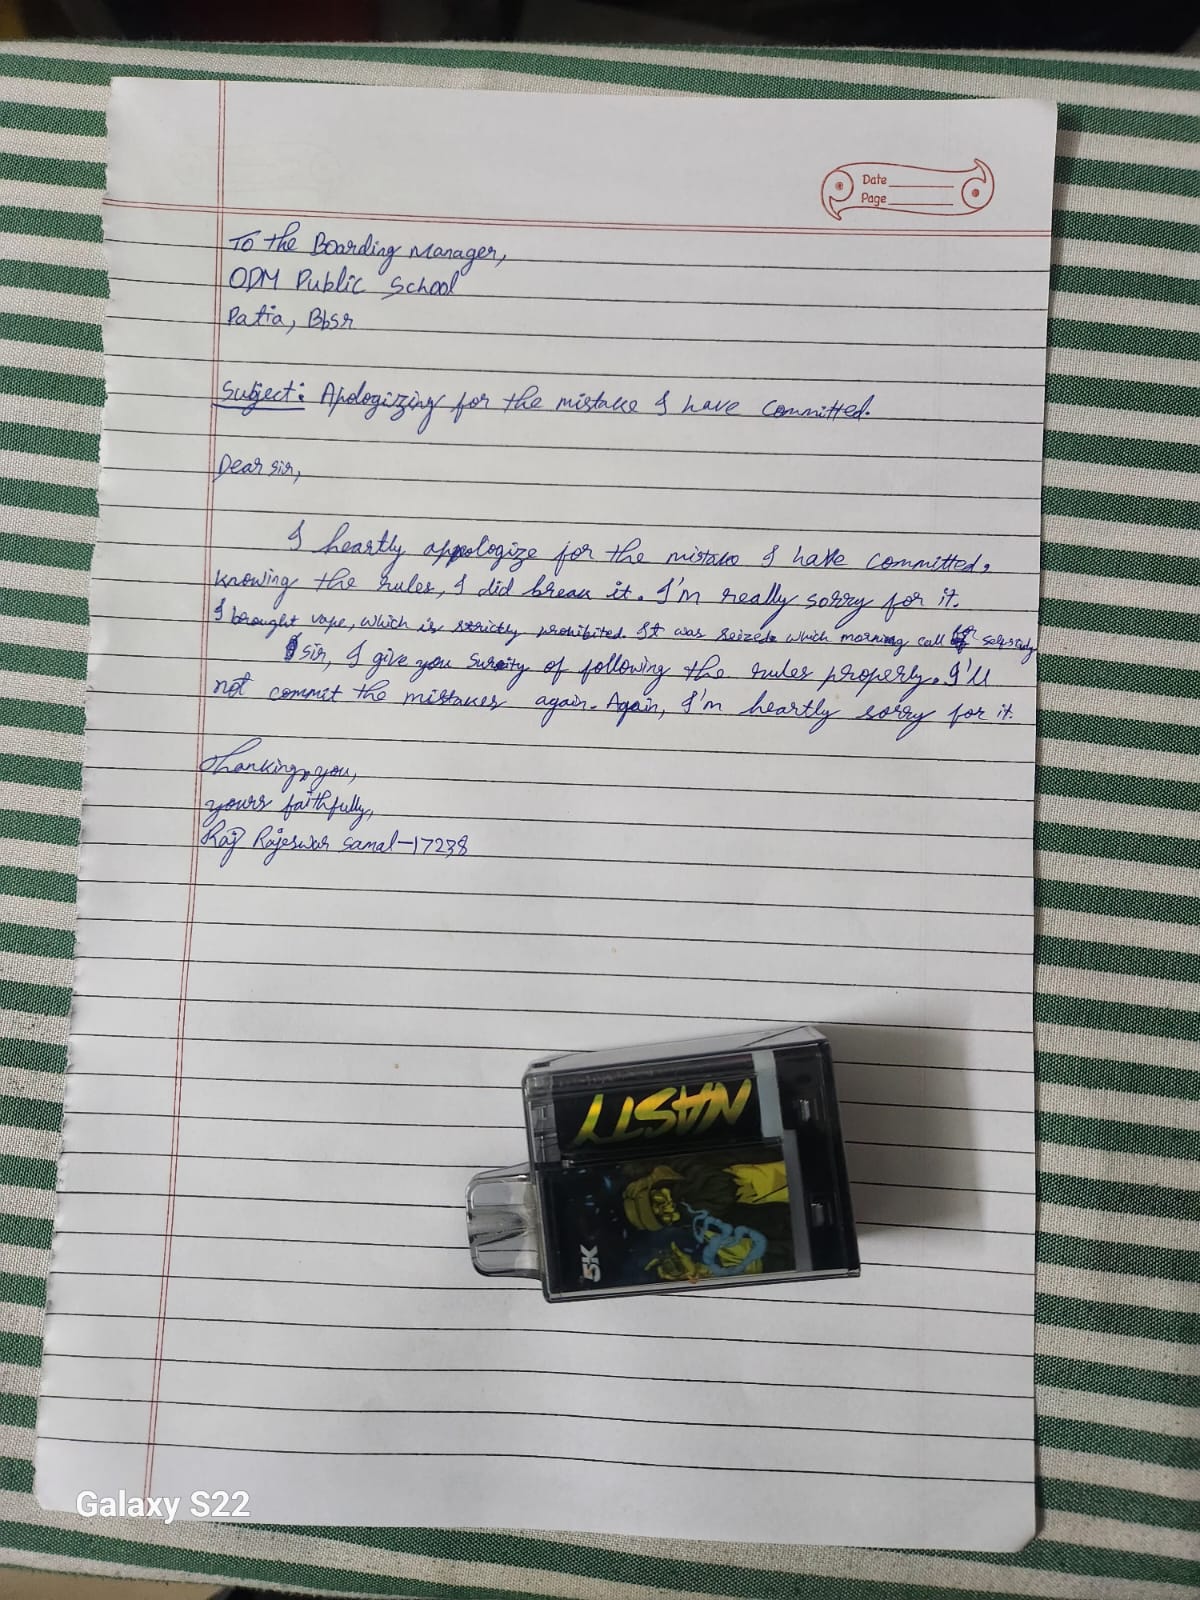 Date
Page
To the Boarding Manager,
ODM Public School
Patia, Bbsr
Subject: Apologizing for the mistake I have committed.
Dear sir,
I heartly appologize for the mistake I have committed,
knowing the rules, I did break it. I'm really sorry for it.
I brought vape, which is strictly prohibited. It was seized which morning call by
sir, I give you surity of following the rules properly. I'll
not commit the mistakes again. Again, I'm heartly sorry for it.
Thanking you,
yours faithfully,
Raj Rajeswar Samal-17238
NASTY
5K
Galaxy S22